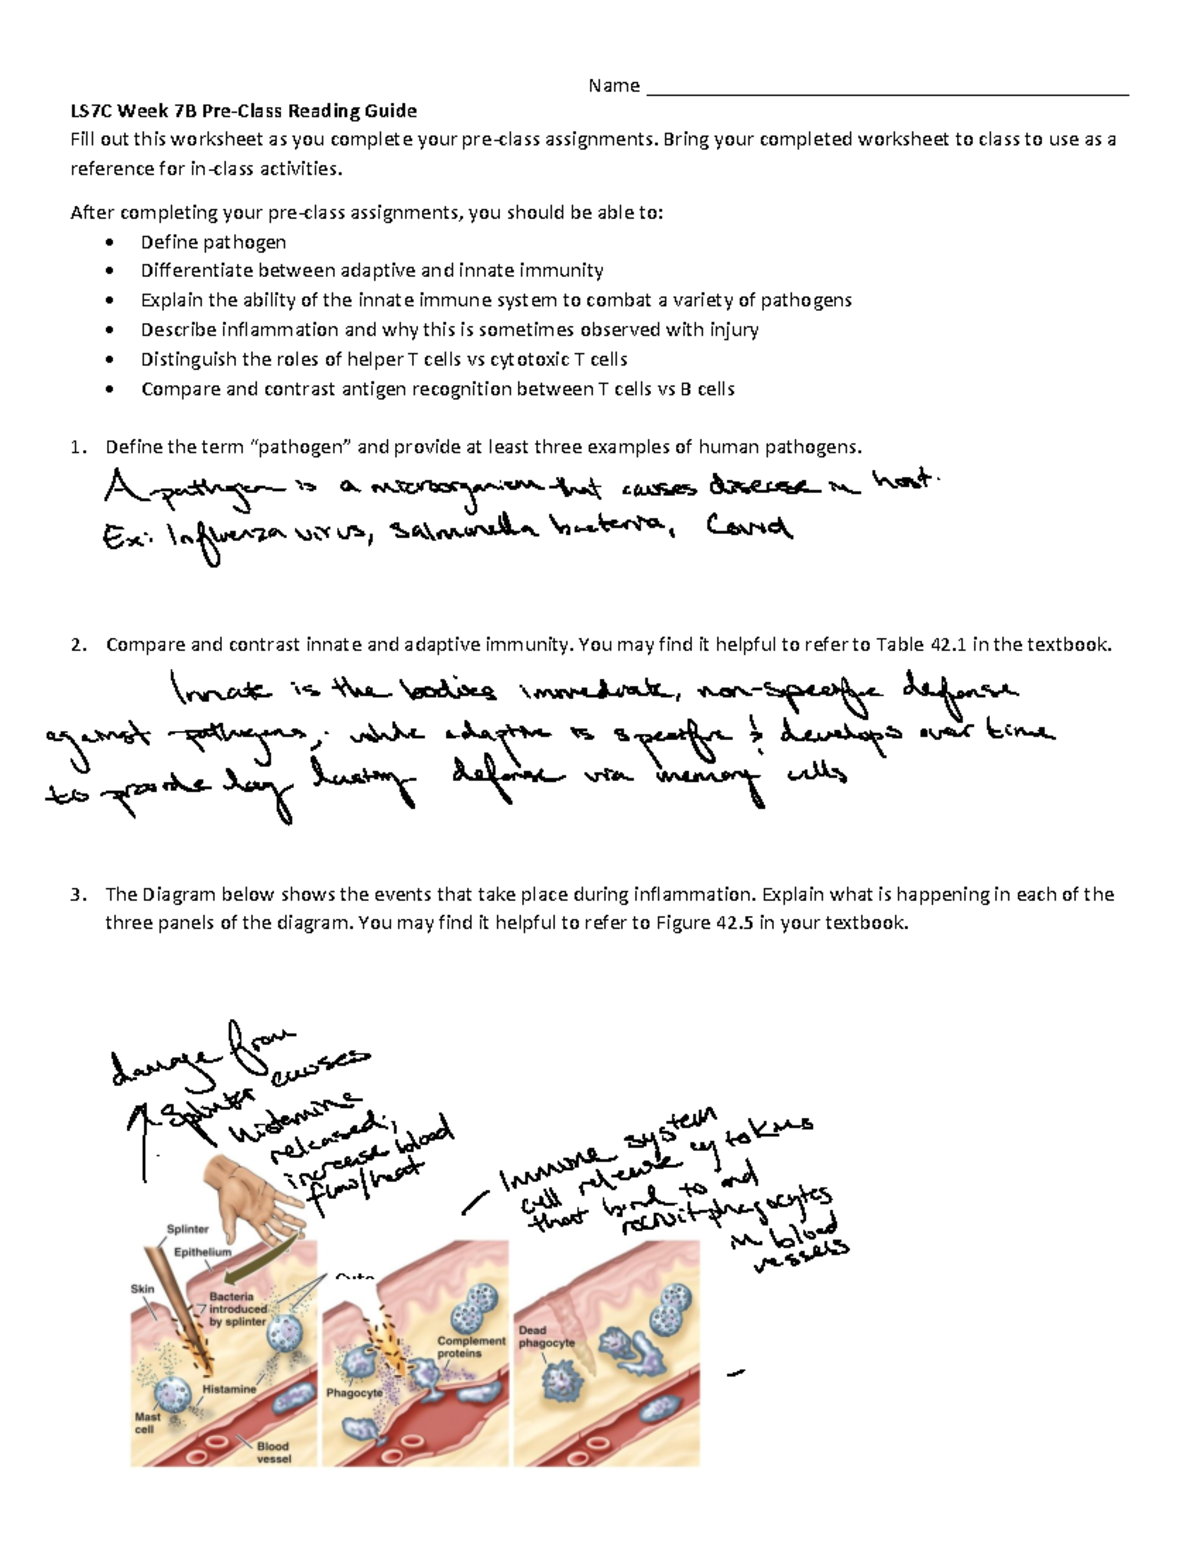 Name
LS7C Week 7B Pre-Class Reading Guide
Fill out this worksheet as you complete your pre-class assignments. Bring your completed worksheet to class to use as a
reference for in-class activities.
After completing your pre-class assignments, you should be able to:
• Define pathogen
• Differentiate between adaptive and innate immunity
• Explain the ability of the innate immune system to combat a variety of pathogens
• Describe inflammation and why this is sometimes observed with injury
• Distinguish the roles of helper T cells vs cytotoxic T cells
• Compare and contrast antigen recognition between T cells vs B cells
1. Define the term “pathogen” and provide at least three examples of human pathogens.
A pathogen is a microorganism that causes disease in host.
Ex: Influenza virus, Salmonella bacteria, Covid
2. Compare and contrast innate and adaptive immunity. You may find it helpful to refer to Table 42.1 in the textbook.
Innate is the bodies immediate, non-specific defense
against pathogens, while adaptive is specific & develops over time
to provide long lasting defense via memory cells
3. The Diagram below shows the events that take place during inflammation. Explain what is happening in each of the
three panels of the diagram. You may find it helpful to refer to Figure 42.5 in your textbook.
damage from
Splinter causes
Histamine
released;
increase blood
flow/heat
- Immune system
cell release cytokins
that bind to and
recruit phagocytes
in blood
vessels
Splinter
Epithelium
Skin
Bacteria
introduced
by splinter
Histamine
Mast
cell
Blood
vessel
Complement
proteins
Phagocyte
Dead
phagocyte
-